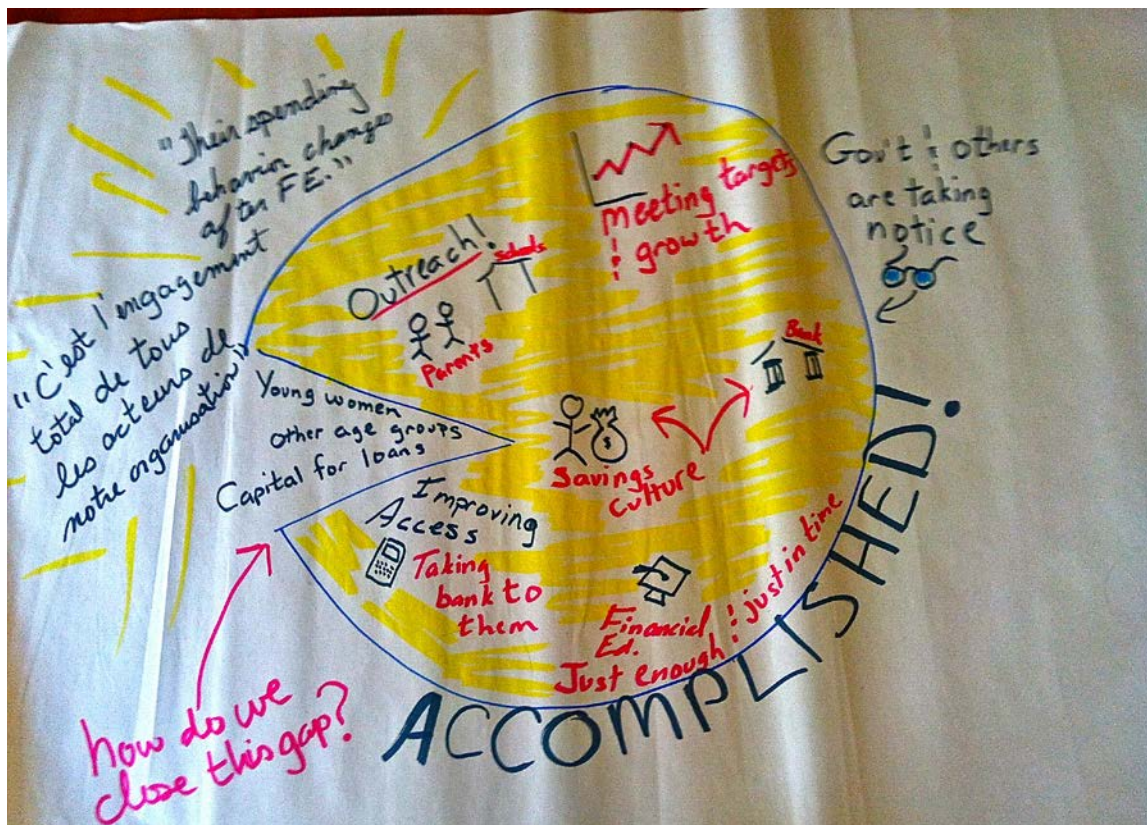 "Their spending
behavior changes
after FE."
"C'est l'engagement
total de tous
les acteurs de
notre organisation"
Outreach!
Schools
Parents
Meeting targets
& growth
Gov't & others
are taking
notice
Bank
Savings
culture
Young women
other age groups
Capital for loans
Improving
Access
Taking
bank to
them
Financial
Ed.
Just enough & just in time
how do we
close this gap?
ACCOMPLISHED!